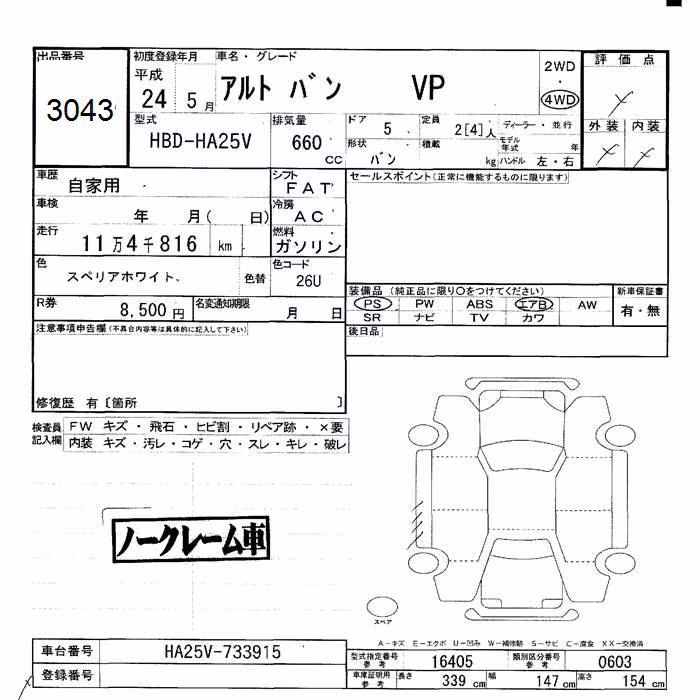 出品番号
3043
初度登録年月
平成
24 5月
車名・グレード
アルト バン VP
2WD
・
4WD
評価点
型式
HBD-HA25V
排気量
660
CC
ドア
5
定員
2[4]人
ディーラー・並行
形状
バン
積載
kg
モデル年式
年
ハンドル 左・右
外装 内装
車歴
自家用
シフト
FAT
セールスポイント(正常に機能するものに限ります)
車検
年 月( 日)
冷房
AC
走行
11万4千816 km
燃料
ガソリン
色
スペリアホワイト、
色替
色コード
26U
装備品 (純正品に限り〇をつけてください)
新車保証書
PS PW ABS エアB AW
有・無
SR ナビ TV カワ
R券
8,500円
名変通知期限
月 日
後日品
注意事項申告欄(不具合内容等は具体的に記入して下さい)
修復歴 有[箇所 ]
検査員
記入欄
FW キズ・飛石・ヒビ割・リペア跡・×要
内装 キズ・汚レ・コゲ・穴・スレ・キレ・破レ
ノークレーム車
スペア
A-キズ E-エクボ U-凹み W-補修跡 S-サビ C-腐食 XX-交換済
車台番号
HA25V-733915
登録番号
型式指定番号
参考
16405
類別区分番号
参考
0603
車庫証明用
参考
長さ
339 cm
幅
147 cm
高さ
154 cm